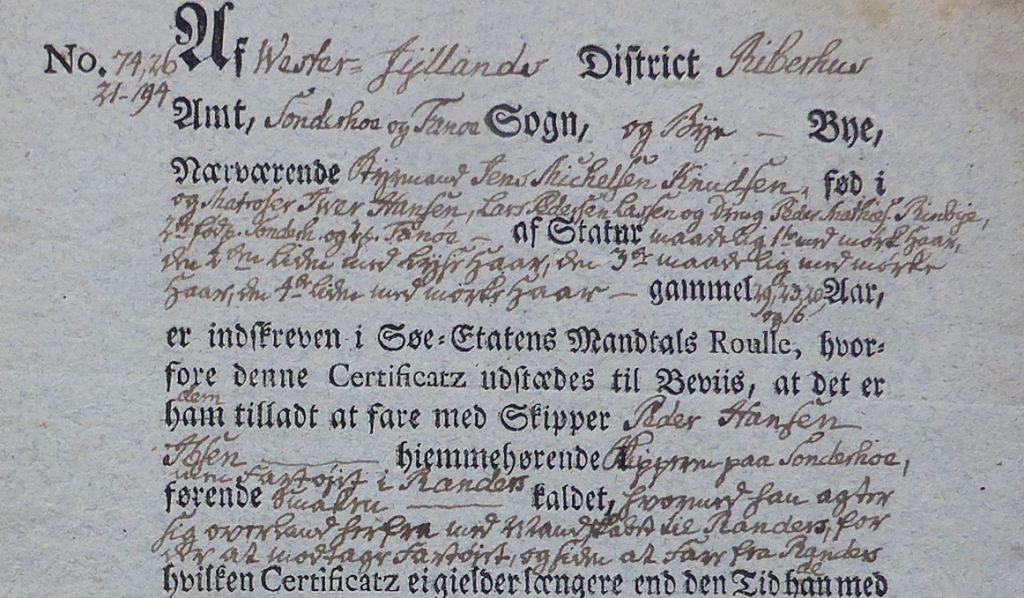 No. 74, 26 Af Wester= Jyllands District Riberhus
21-194
Amt, Sonderhoe og Fanoe Sogn, og Bye — Bye,
Nærværende Styrmand Jens Michelsen Knudsen, fød i
og Matroser Iwer Hansen, Lars Pedersen Lassen og Dreng Peder Mathies. Rindbye,
født Sonderh. og Fanoe — af Statur maadelig 1te med mørk Haar,
den 2den liden med lyse Haar, den 3de maadelig med mørke
Haar, den 4de liden med mørke Haar — gammel 29, 23, 20 Aar,
og 16
er indskreven i Søe=Etatens Mandtals Roulle, hvor=
fore denne Certificatz udstædes til Beviis, at det er
dem
ham tilladt at fare med Skipper Peder Hansen
Ibsen — hiemmehørende Skipperen paa Sonderhoe,
men Fartøjet i Randers
førende Smakken — kaldet, hvormed han agter
sig overland herfra med Mandskabet til Randers, for
der at modtage Fartøjet, og siden at fare fra Randers
de
hvilken Certificatz ei gielder længere end den Tid han med